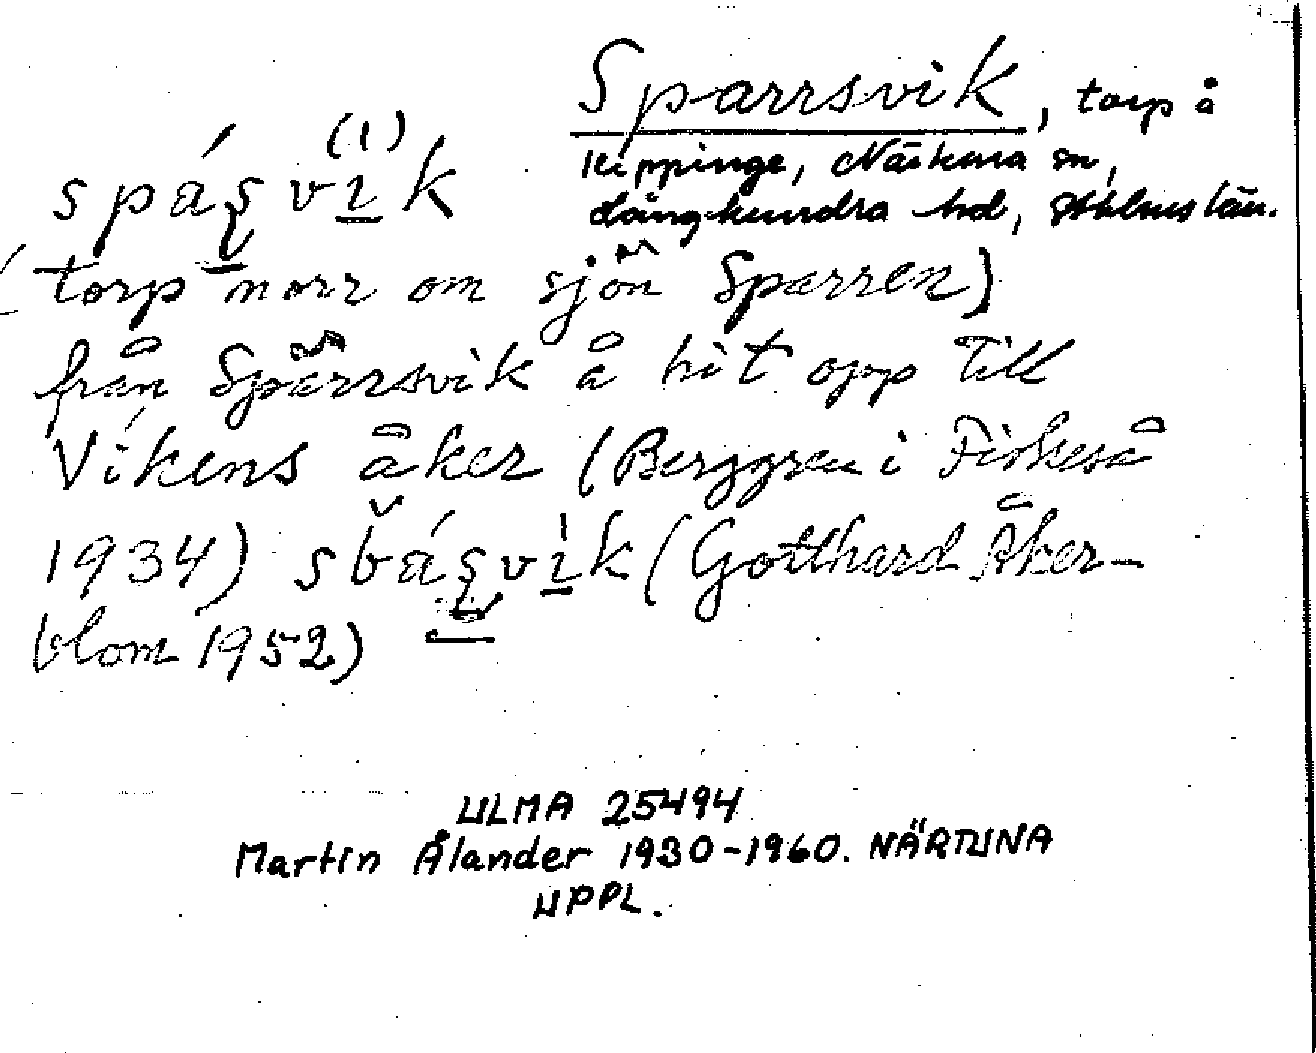 Sparrsvik, torp å
Kippinge, Närtuna sn,
Långhundra hd, Sthlms län.
(1)
spáʂvık
(torp norr om sjön Sparren)
från Sparrsvik å hit opp till
Vikens åker (Berggren i Fiskeså
1934) sb̌áʂvık (Gotthard Åker-
blom 1952)
ULMA 25494
Martin Ålander 1930-1960. NÄRTUNA
UPPL.